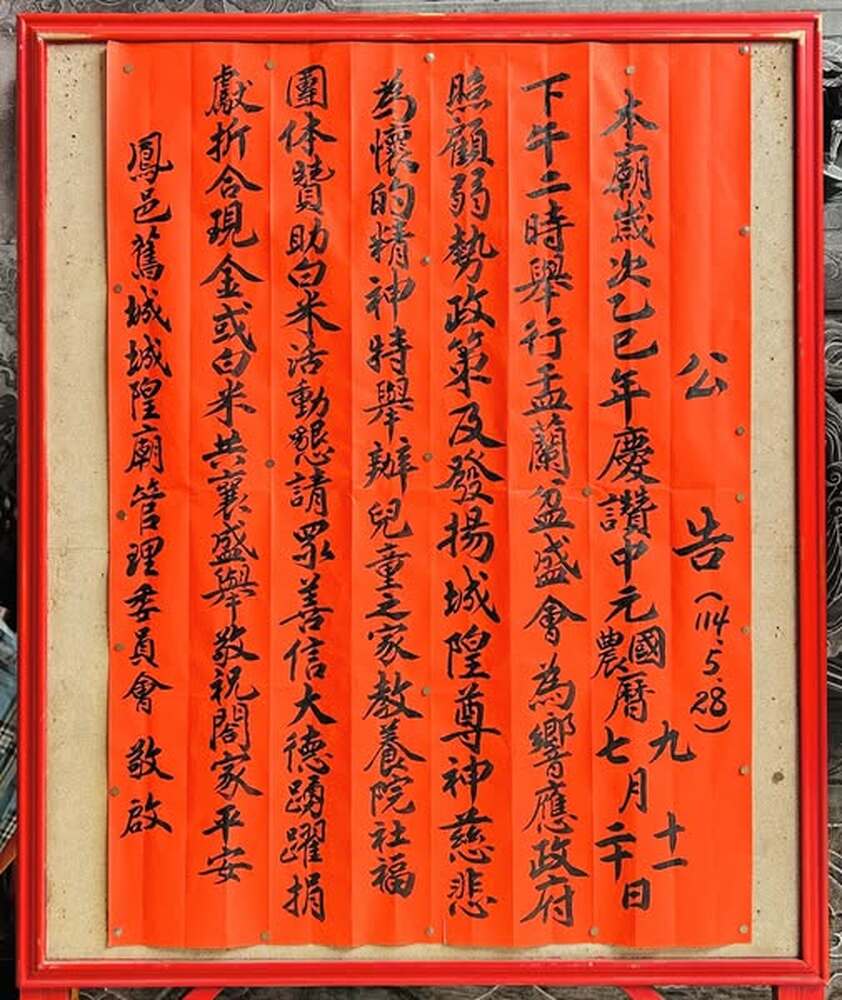 公告(114.5.28)
本廟歲次乙巳年慶讚中元國農曆九七月十一二十日
下午二時舉行盂蘭盆盛會為響應政府
照顧弱勢政策及發揚城隍尊神慈悲
為懷的精神特舉辦兒童之家教養院社福
團体贊助白米活動懇請眾善信大德踴躍捐
獻折合現金或白米共襄盛舉敬祝閤家平安
鳳邑舊城城隍廟管理委員會 敬啟